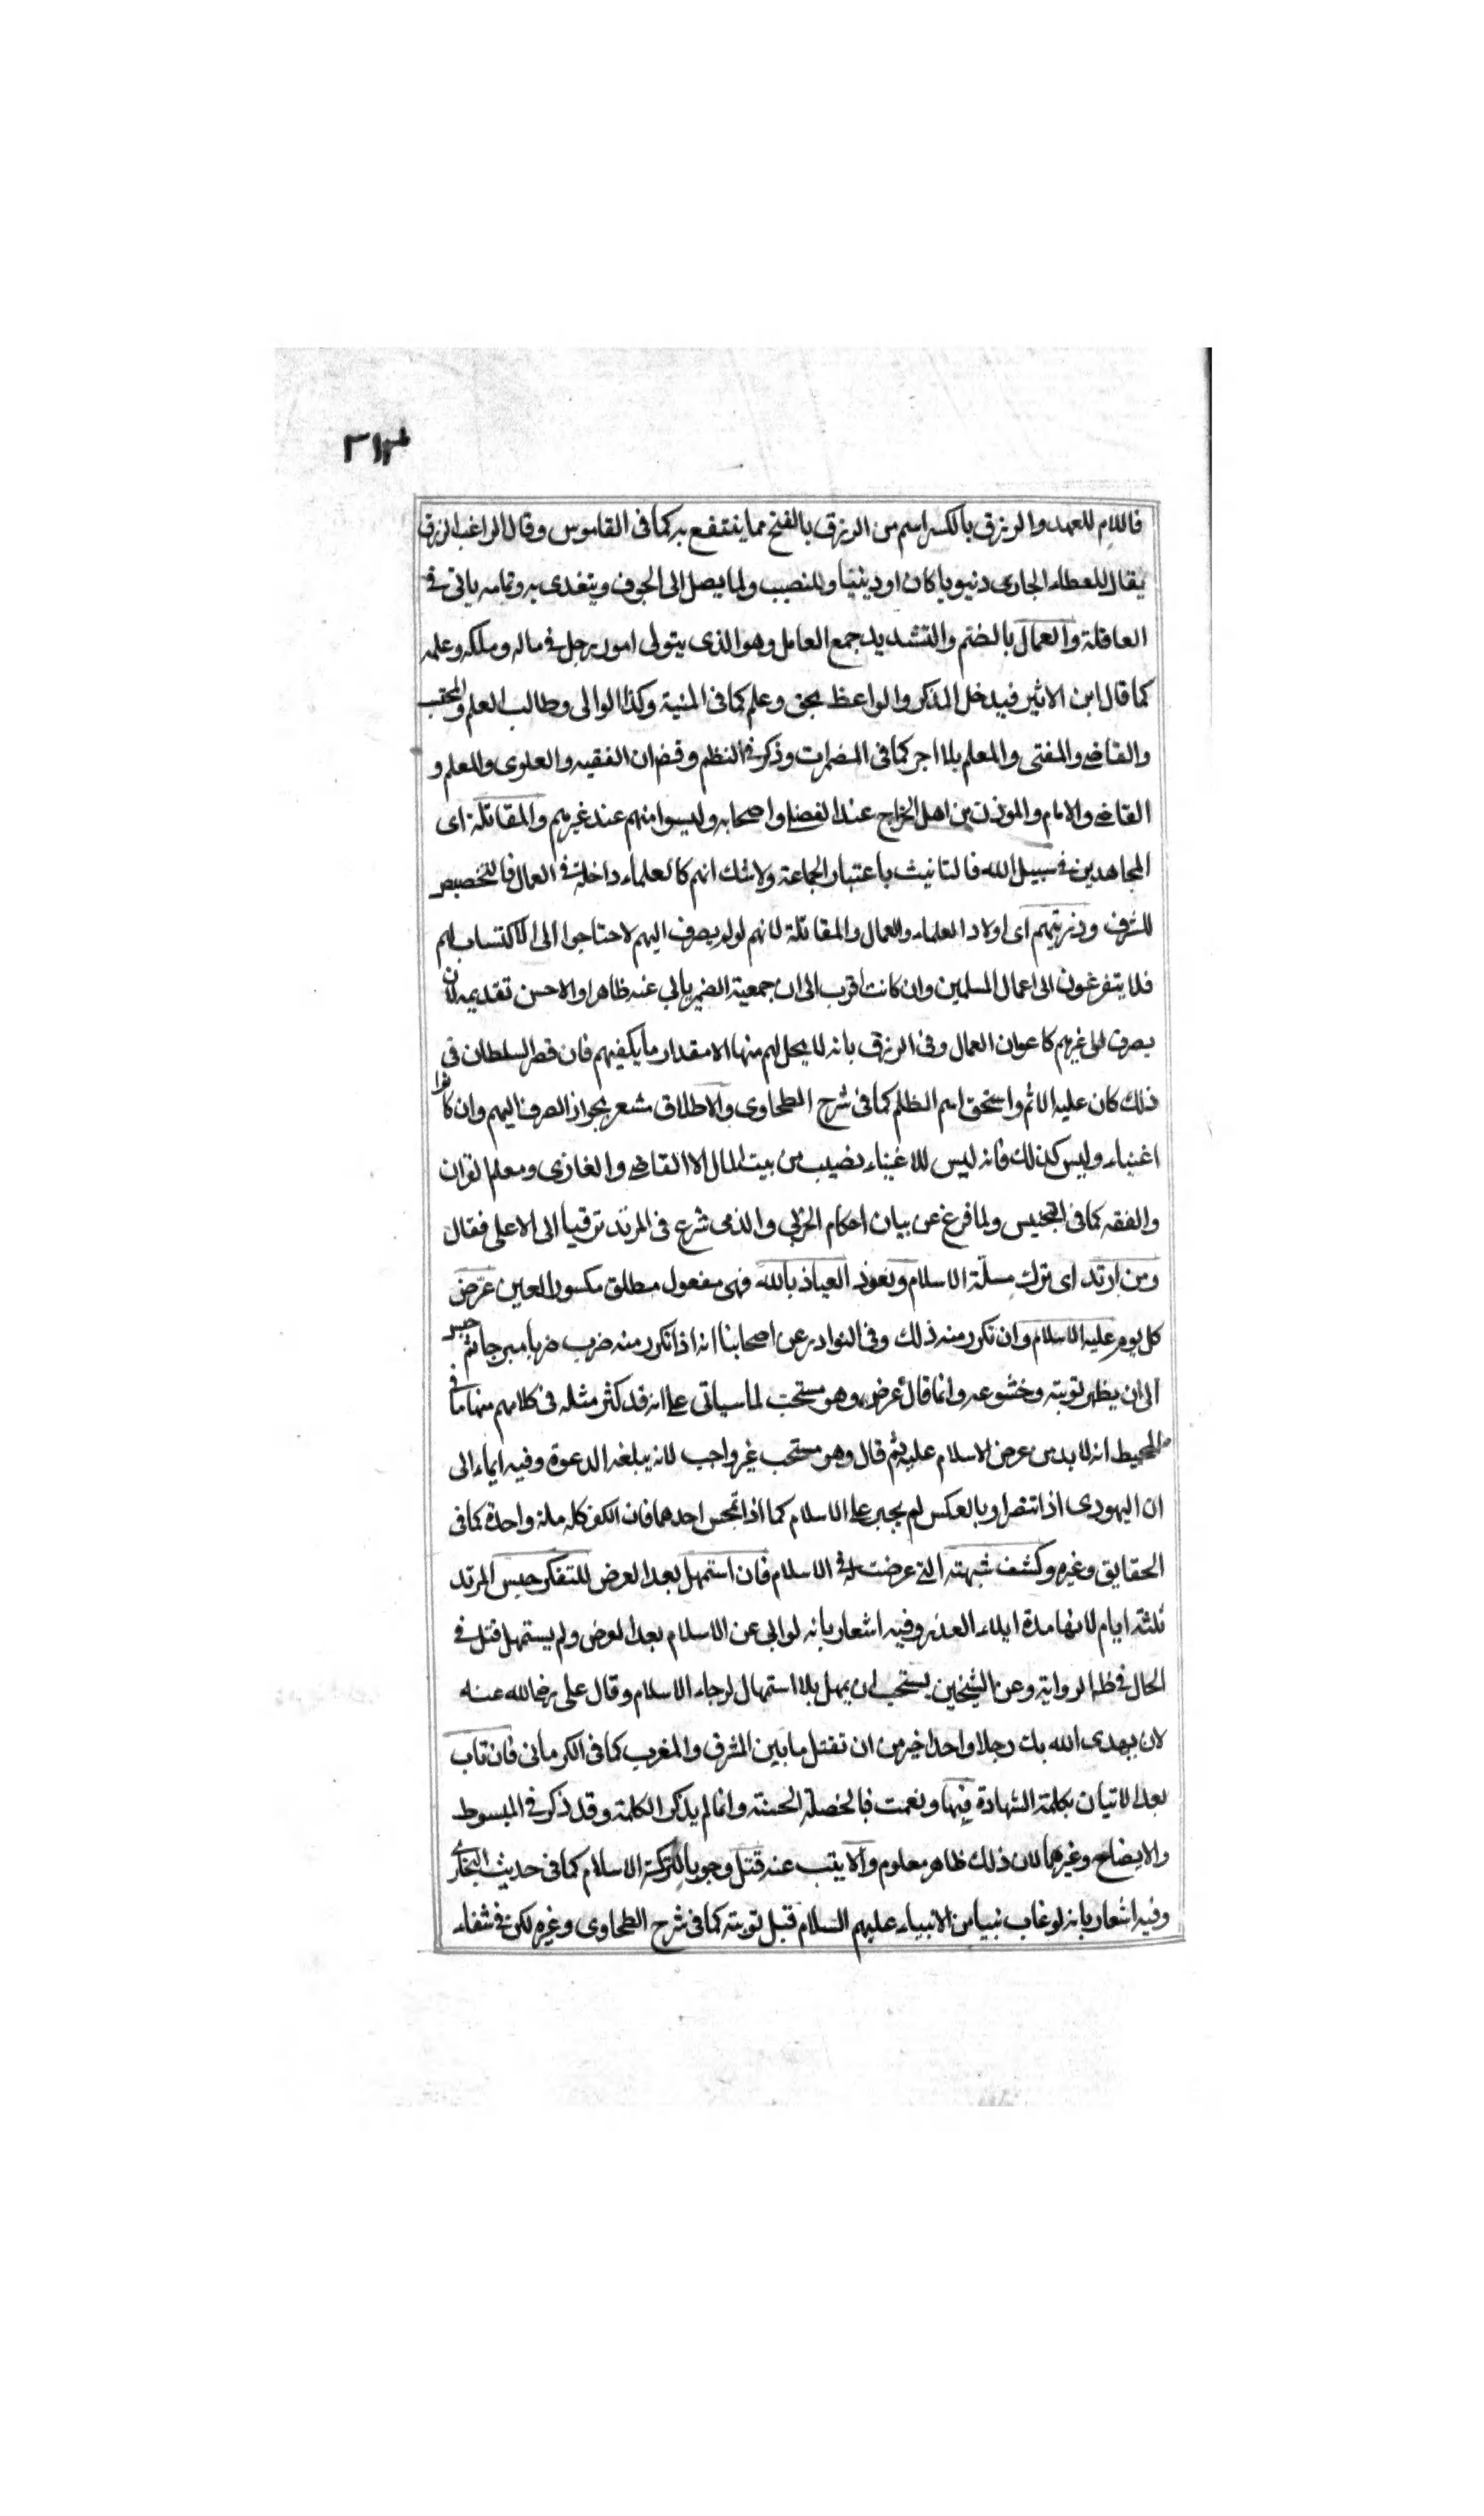 ٣١٣
فاللام للعهد والرزق بالكسر اسم من الرزق بالفتح مما ينتفع به كما فى القاموس وقال الراغب الرزق
يقال للعطاء الجارى دنيويا كان او دينيا وللنصيب ولما يصل الى الجوف ويتغذى به وتمامه ياتى فى
العاقلة والعمال بالضم والتشديد جمع العامل وهو الذى يتولى امور رجل فى ماله وملكه وعمله
كما قال ابن الاثير فيدخل المذكر والواعظ بحق وعلم كما فى المنية وكذا الوالى وطالب العلم والمحتسب
والقاضى والمفتى والمعلم بلا اجر كما فى المضمرات وذكر فى النظم وقضى ان الفقيه والعلوى والمعلم و
القاضى والامام والموذن من اهل الخراج عند الفضلى واصحابه وليسوا منهم عند غيرهم والمقاتلة اى
المجاهدين فى سبيل الله فالتانيث باعتبار الجماعة ولا شك انهم كالعلماء داخلة فى العمال فالتخصيص
للشرف وذريتهم اى اولاد العلماء والعمال والمقاتلة لانهم لو لم يصرف اليهم لاحتاجوا الى الاكتساب لهم
فلا يتفرغون الى اعمال المسلمين وان كانت اقرب الى ان جمعية الضمير يابى عنه ظاهرا والاحسن تقديمه لان
يصرف الى غيرهم كاعوان العمال وفى الرزق بانه لا يحل لهم منها الا مقدار ما يكفيهم فان قصر السلطان فى
ذلك كان عليه الاثم واستحق اسم الظلم كما فى شرح الطحاوى والاطلاق مشعر بجواز الصرف اليهم وان كانوا
اغنياء وليس كذلك فانه ليس للاغنياء نصيب من بيت المال الا القاضى والغازى ومعلم القران
والفقه كما فى التجنيس ولما فرغ عن بيان احكام الحربى والذمى شرع فى المرتد ترقيا الى الاعلى فقال
ومن ارتد اى ترك مسلة الاسلام ونعوذ العياذ بالله فهى مفعول مطلق مكسور العين عرض
كل يوم عليه الاسلام وان تكرر منه ذلك وفى النوادر عن اصحابنا انه اذا تكرر منه ضرب ضربا مبرحا ثم حبس
الى ان يظهر توبته وخشوعه وانما قال عرض وهو مستحب لما سياتى على انه قد كثر مثله فى كلامهم منها ما فى
المحيط انه لا بد من عرض الاسلام عليه ثم قال وهو مستحب غير واجب لانه يبلغه الدعوة وفيه ايماء الى
ان اليهودى اذا تنصر او بالعكس لم يجبر على الاسلام كما اذا تمجس احدهما فان الكفر كله ملة واحدة كما فى
الحقايق وغيره وكشف شبهته التى عرضت له فى الاسلام فان استمهل بعد العرض للتفكر حبس المرتد
ثلثة ايام لانها مدة ابلاء العذر وفيه اشعار بانه لو ابى عن الاسلام بعد العرض ولم يستمهل قتل فى
الحال فى ظاهر الرواية وعن الشيخين يستحب ان يمهل بلا استمهال لرجاء الاسلام وقال على رضى الله عنه
لان يهدى الله بك رجلا واحدا خير من ان تقتل ما بين المشرق والمغرب كما فى الكرمانى فان تاب
بعد الاتيان بكلمة الشهادة فبها ونعمت فبالخصلة الحسنة وانما لم يذكر الكلمة وقد ذكر فى المبسوط
والايضاح وغيرهما لان ذلك ظاهر معلوم والا يتب عنه قتل وجوبا لتركه الاسلام كما فى حديث البخارى
وفيه اشعار بانه لو عاب نبيا من الانبياء عليهم السلام قبل توبته كما فى شرح الطحاوى وغيره لكن فى شفاء